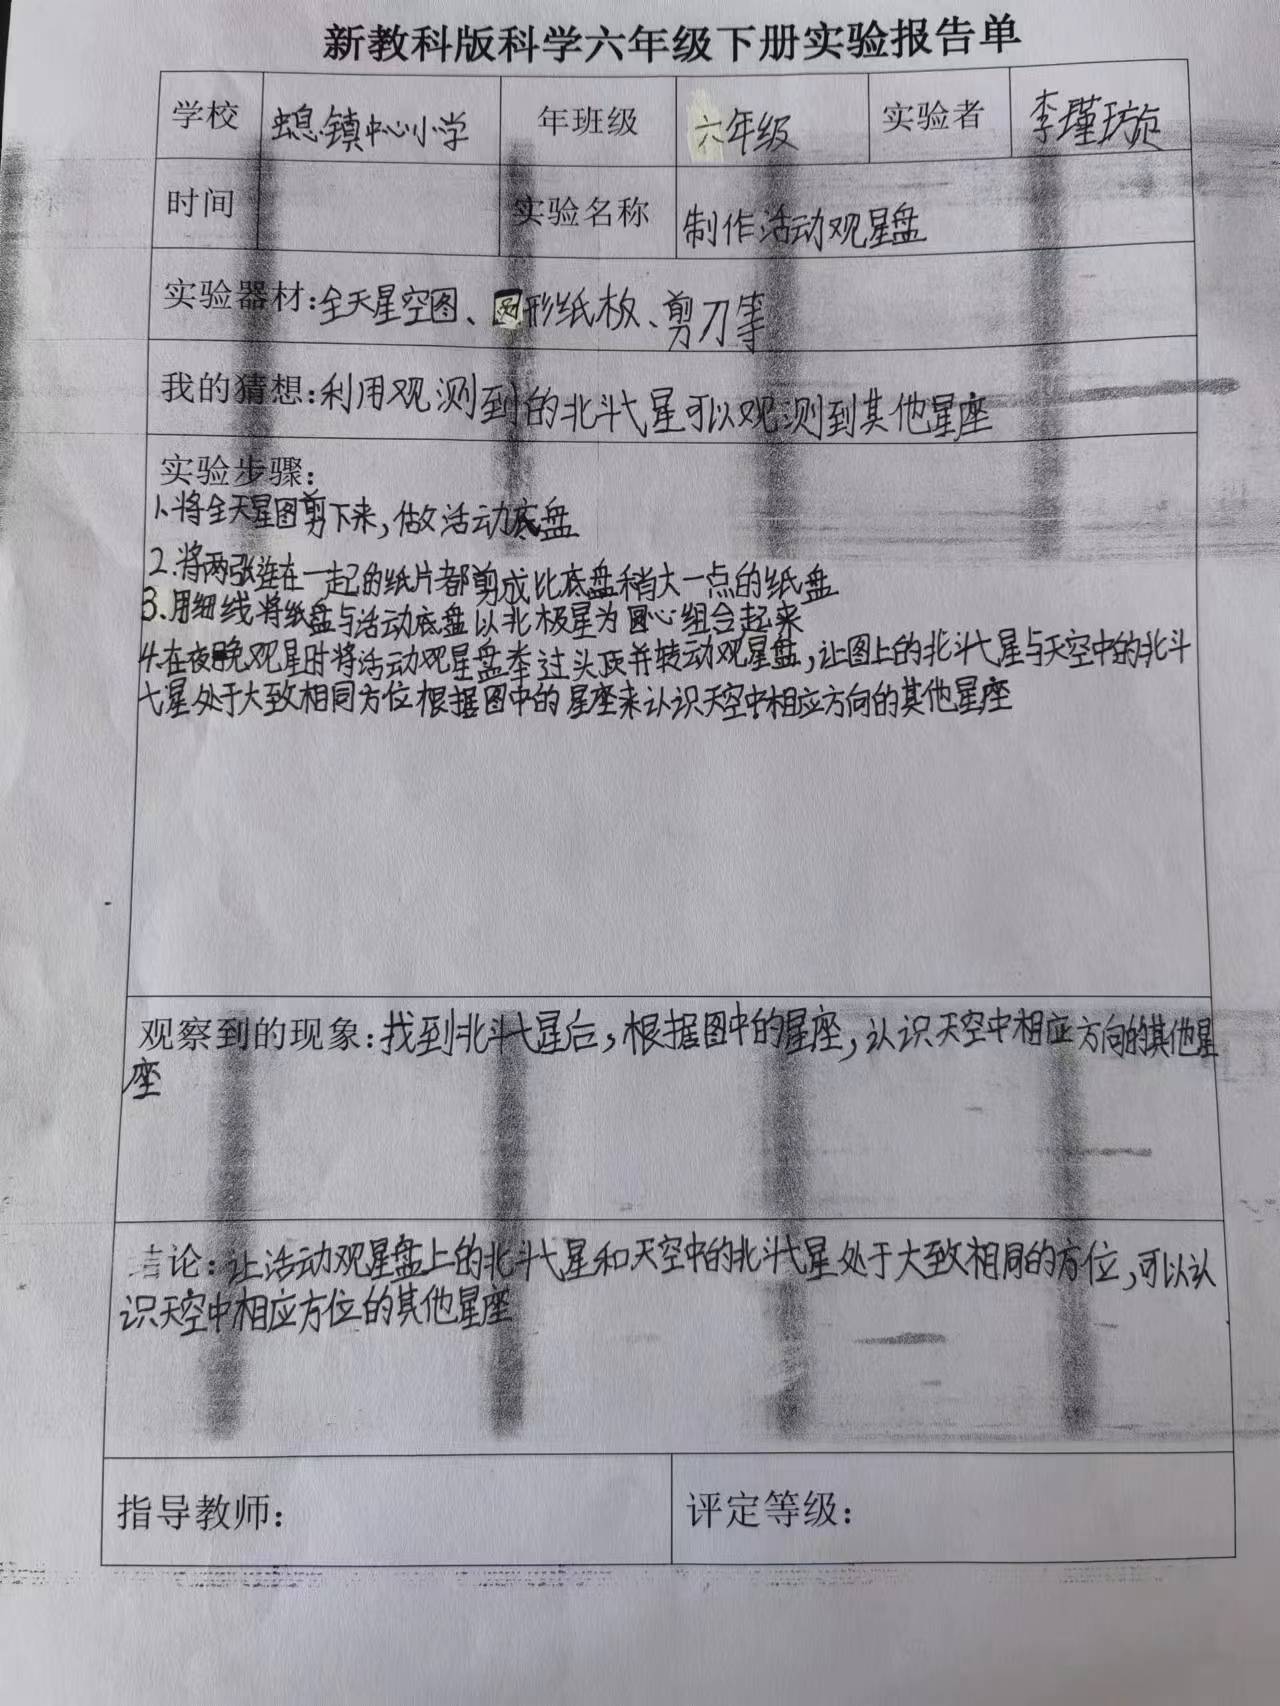 新教科版科学六年级下册实验报告单
学校 螅镇中心小学 年班级 六年级 实验者 李瑾璇
时间 实验名称 制作活动观星盘
实验器材：全天星空图、圆形纸板、剪刀等
我的猜想：利用观测到的北斗七星可以观测到其他星座
实验步骤：
1、将全天星图剪下来，做活动底盘
2.将两张连在一起的纸片都剪成比底盘稍大一点的纸盘
3.用细线将纸盘与活动底盘以北极星为圆心组合起来
4.在夜晚观星时将活动观星盘举过头顶并转动观星盘，让图上的北斗七星与天空中的北斗
七星处于大致相同方位根据图中的星座来认识天空中相应方向的其他星座
观察到的现象：找到北斗七星后，根据图中的星座，认识天空中相应方向的其他星
座
结论：让活动观星盘上的北斗七星和天空中的北斗七星处于大致相同的方位，可以认
识天空中相应方位的其他星座
指导教师： 评定等级：